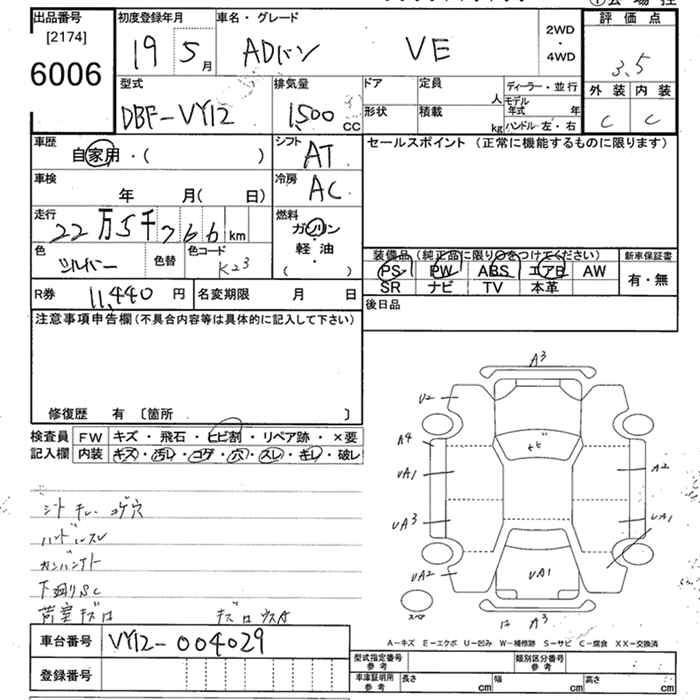 出品番号
[2174]
6006
初度登録年月
19 5月
車名・グレード
ADバン VE
2WD
・
4WD
評価点
3.5
外装 内装
C C
型式
DBF-VY12
排気量
1500 CC
ドア
形状
定員
人
積載
kg
ディーラー・並行
モデル年式 年
ハンドル 左・右
車歴
自家用・( )
シフト
AT
セールスポイント (正常に機能するものに限ります)
車検
年 月( 日)
冷房
AC
走行
22万5千766km
燃料
ガソリン
・
軽・油
( )
色
シルバー
色替
色コード
K23
装備品 (純正品に限り○をつけてください)
新車保証書
PS PW ABS エアB AW
SR ナビ TV 本革
有・無
R券 11,440 円
名変期限 月 日
後日品
注意事項申告欄(不具合内容等は具体的に記入して下さい)
修復歴 有 〔箇所 〕
検査員記入欄
FW キズ・飛石・ヒビ割・リペア跡・×要
内装 キズ・汚レ・コゲ・穴・スレ・キレ・破レ
シート キレ コゲ穴
ハンドルスレ
ガンバンアト
下廻りSC
荷室キズロ
車台番号 VY12-004029
登録番号
A3
U2
A4
UA1
UA3
UA2
ヒビ
A2
UA1
UA1
スペア
A3
A-キズ E-エクボ U-凹み W-補修跡 S-サビ C-腐食 XX-交換済
型式指定番号
参考
類別区分番号
参考
車庫証明用
参考
長さ cm
幅 cm
高さ cm